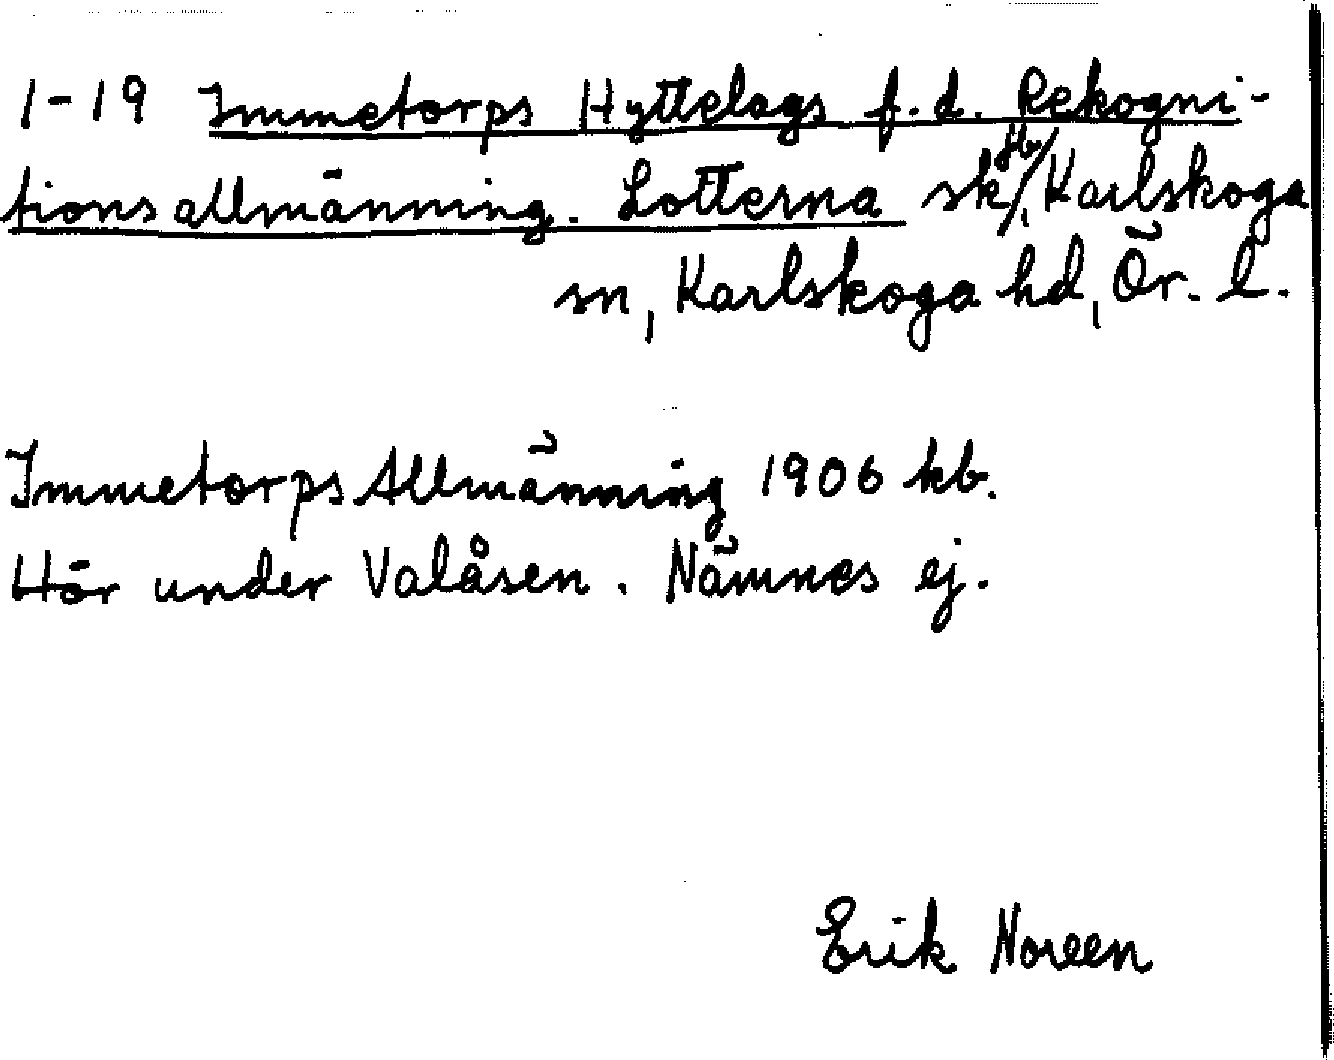 1-19 Immetorps Hyttelags f.d. Rekogni-
tionsallmänning. Lotterna sk jb/. Karlskoga
sn, Karlskoga hd, Ör. l.
Immetorps Allmänning 1906 kb.
Hör under Valåsen. Nämnes ej.
Erik Noreen